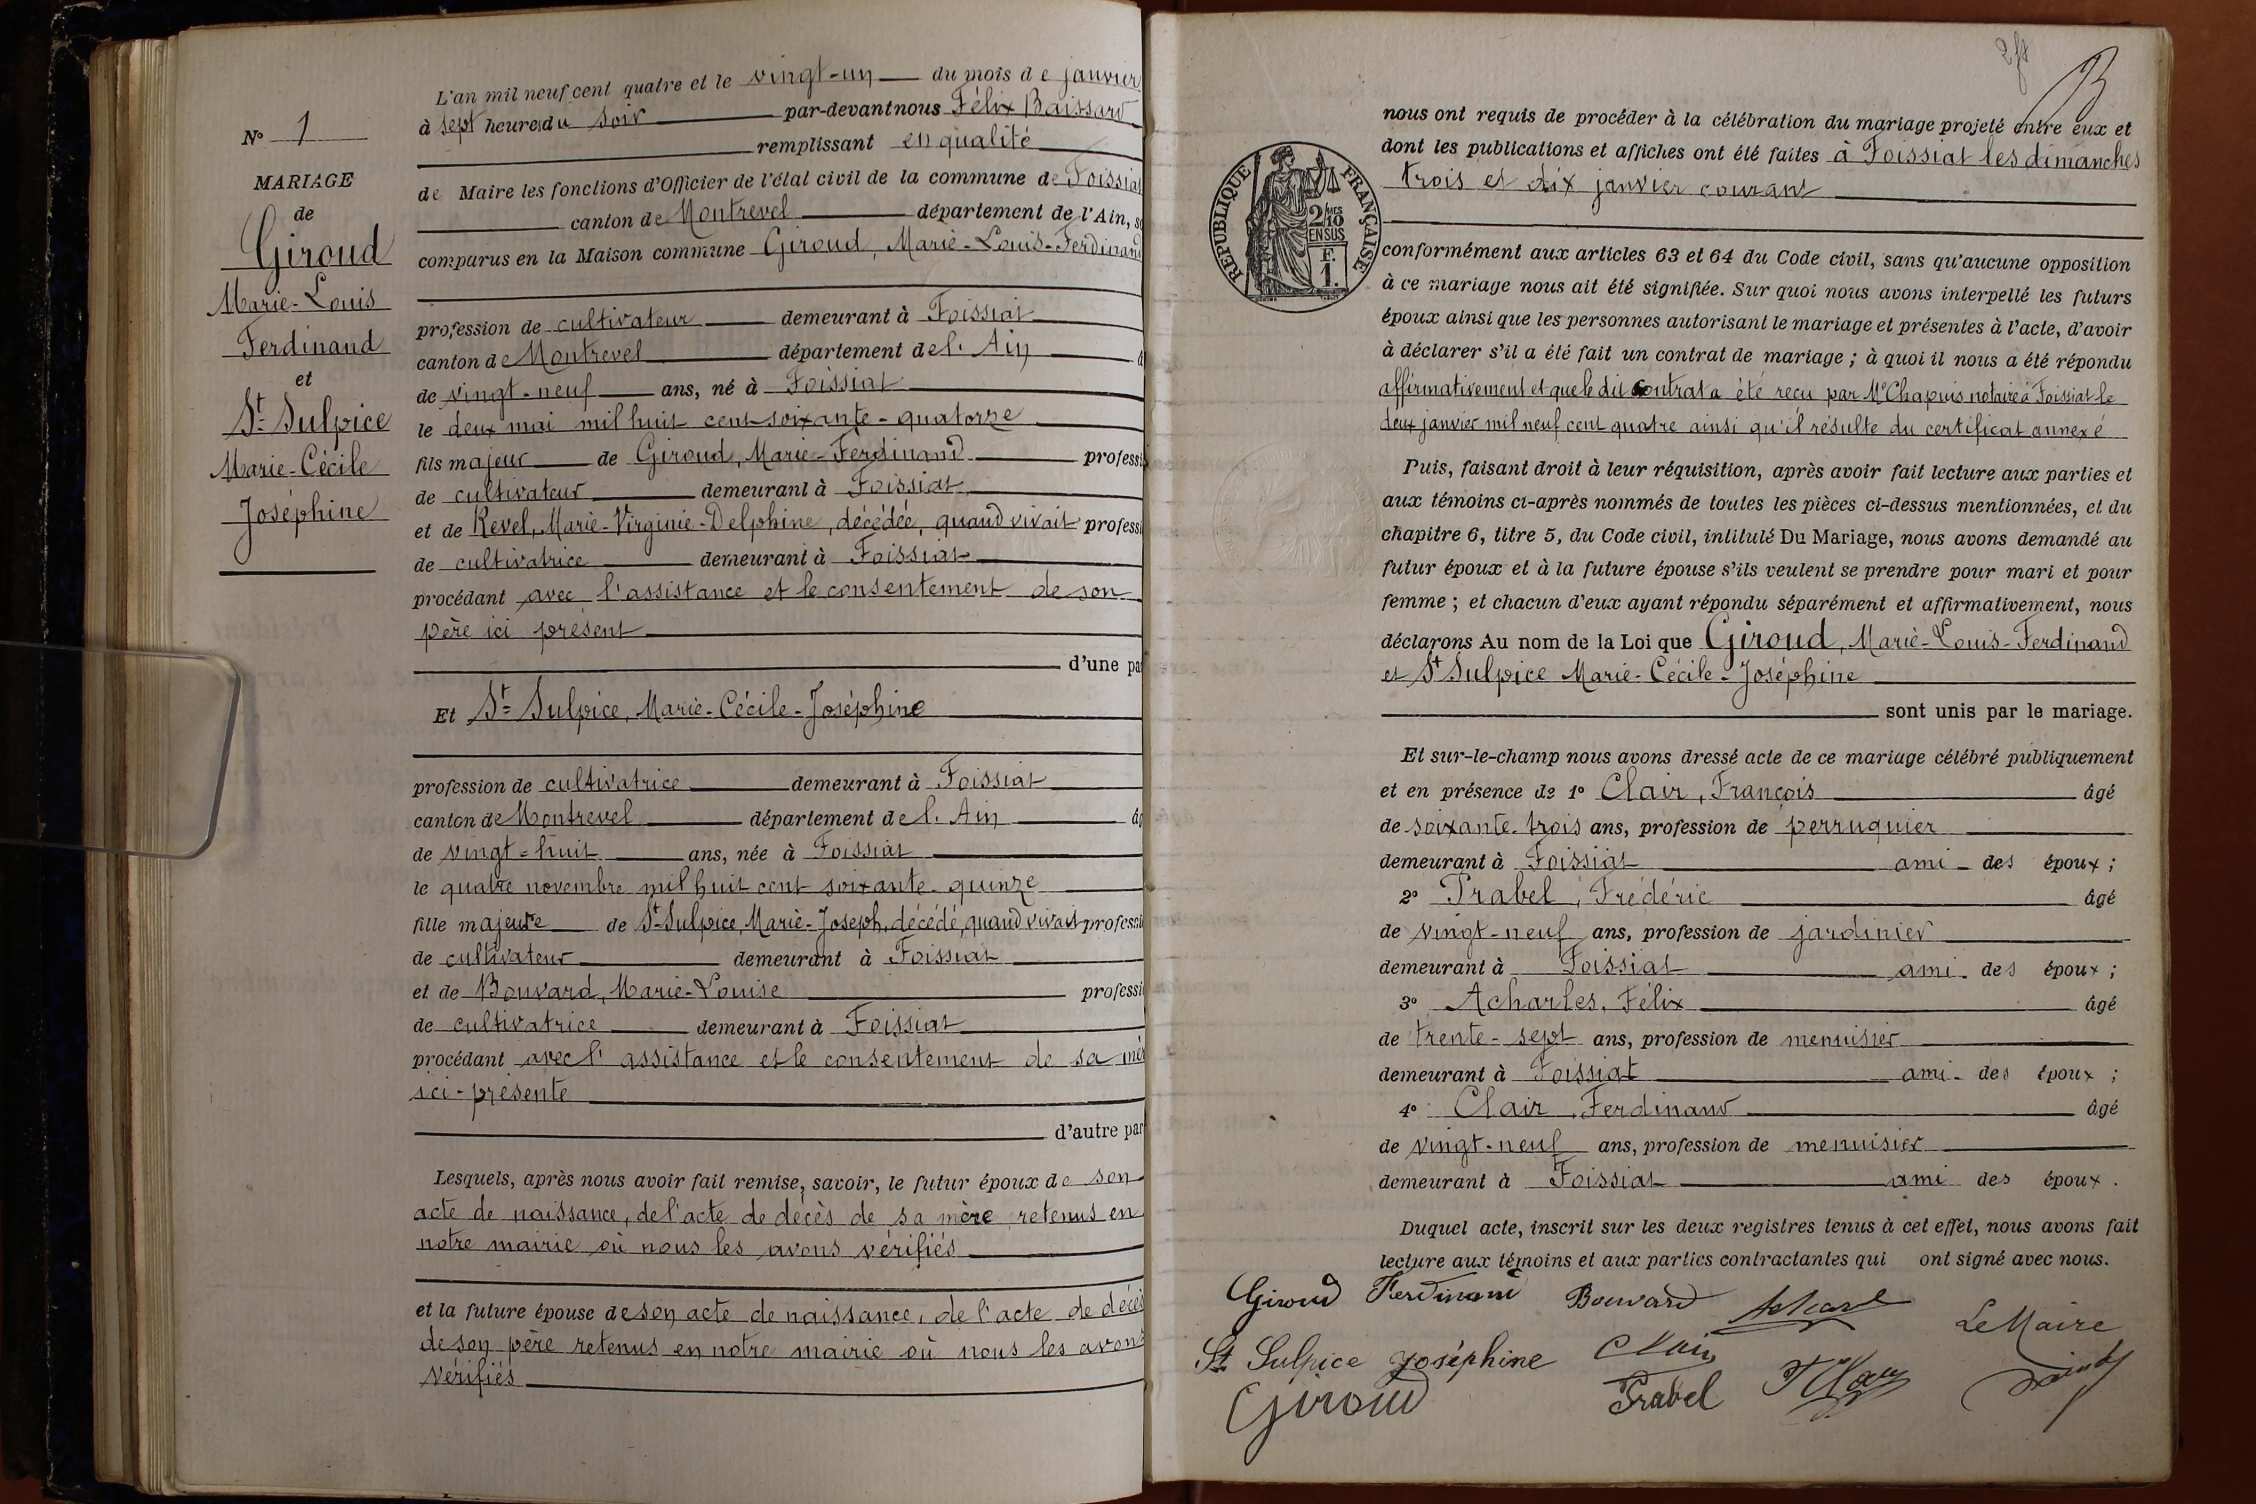 N° 1
MARIAGE
de
Giroud
Marie-Louis
Ferdinand
et
St Sulpice
Marie-Cécile
Joséphine
L'an mil neuf cent quatre et le vingt-un du mois de janvier
à sept heures du soir par-devant nous Félix Baissard
remplissant en qualité
de Maire les fonctions d'Officier de l'état civil de la commune de Foissiat
canton de Montrevel département de l'Ain, so
comparus en la Maison commune Giroud, Marie-Louis-Ferdinand
profession de cultivateur demeurant à Foissiat
canton de Montrevel département de l'Ain â
de vingt-neuf ans, né à Foissiat
le deux mai mil huit cent soixante-quatorze
fils majeur de Giroud, Marie-Ferdinand professi
de cultivateur demeurant à Foissiat
et de Revel, Marie-Virginie-Delphine, décédée, quand vivait professi
de cultivatrice demeurant à Foissiat
procédant avec l'assistance et le consentement de son
père ici présent
d'une pa
Et St Sulpice, Marie-Cécile-Joséphine
profession de cultivatrice demeurant à Foissiat
canton de Montrevel département de l'Ain âg
de vingt-huit ans, née à Foissiat
le quatre novembre mil huit cent soixante-quinze
fille majeure de St Sulpice, Marie-Joseph, décédé, quand vivait professi
de cultivateur demeurant à Foissiat
et de Bouvard, Marie-Louise professi
de cultivatrice demeurant à Foissiat
procédant avec l'assistance et le consentement de sa mèr
ici-présente
d'autre par
Lesquels, après nous avoir fait remise, savoir, le futur époux de son
acte de naissance, de l'acte de décès de sa mère retenus en
notre mairie où nous les avons vérifiés
et la future épouse de son acte de naissance, de l'acte de décès
de son père retenus en notre mairie où nous les avons
vérifiés
RÉPUBLIQUE FRANÇAISE
2/10 MES
EN SUS
F.
1.
nous ont requis de procéder à la célébration du mariage projeté entre eux et
dont les publications et affiches ont été faites à Foissiat les dimanches
trois et dix janvier courant
conformément aux articles 63 et 64 du Code civil, sans qu'aucune opposition
à ce mariage nous ait été signifiée. Sur quoi nous avons interpellé les futurs
époux ainsi que les personnes autorisant le mariage et présentes à l'acte, d'avoir
à déclarer s'il a été fait un contrat de mariage ; à quoi il nous a été répondu
affirmativement et que le dit contrat a été reçu par Me Chapuis notaire à Foissiat le
deux janvier mil neuf cent quatre ainsi qu'il résulte du certificat annexé
Puis, faisant droit à leur réquisition, après avoir fait lecture aux parties et
aux témoins ci-après nommés de toutes les pièces ci-dessus mentionnées, et du
chapitre 6, titre 5, du Code civil, intitulé Du Mariage, nous avons demandé au
futur époux et à la future épouse s'ils veulent se prendre pour mari et pour
femme ; et chacun d'eux ayant répondu séparément et affirmativement, nous
déclarons Au nom de la Loi que Giroud, Marie-Louis-Ferdinand
et St Sulpice Marie-Cécile-Joséphine
sont unis par le mariage.
Et sur-le-champ nous avons dressé acte de ce mariage célébré publiquement
et en présence de 1° Clair, François âgé
de soixante-trois ans, profession de perruquier
demeurant à Foissiat ami des époux ;
2° Prabel, Frédéric âgé
de vingt-neuf ans, profession de jardinier
demeurant à Foissiat ami des époux ;
3° Acharles, Félix âgé
de trente-sept ans, profession de menuisier
demeurant à Foissiat ami des époux ;
4° Clair, Ferdinand âgé
de vingt-neuf ans, profession de menuisier
demeurant à Foissiat ami des époux.
Duquel acte, inscrit sur les deux registres tenus à cet effet, nous avons fait
lecture aux témoins et aux parties contractantes qui ont signé avec nous.
Giroud Ferdinand Bouvard
Le Maire
St Sulpice Joséphine Clair
Giroud Prabel